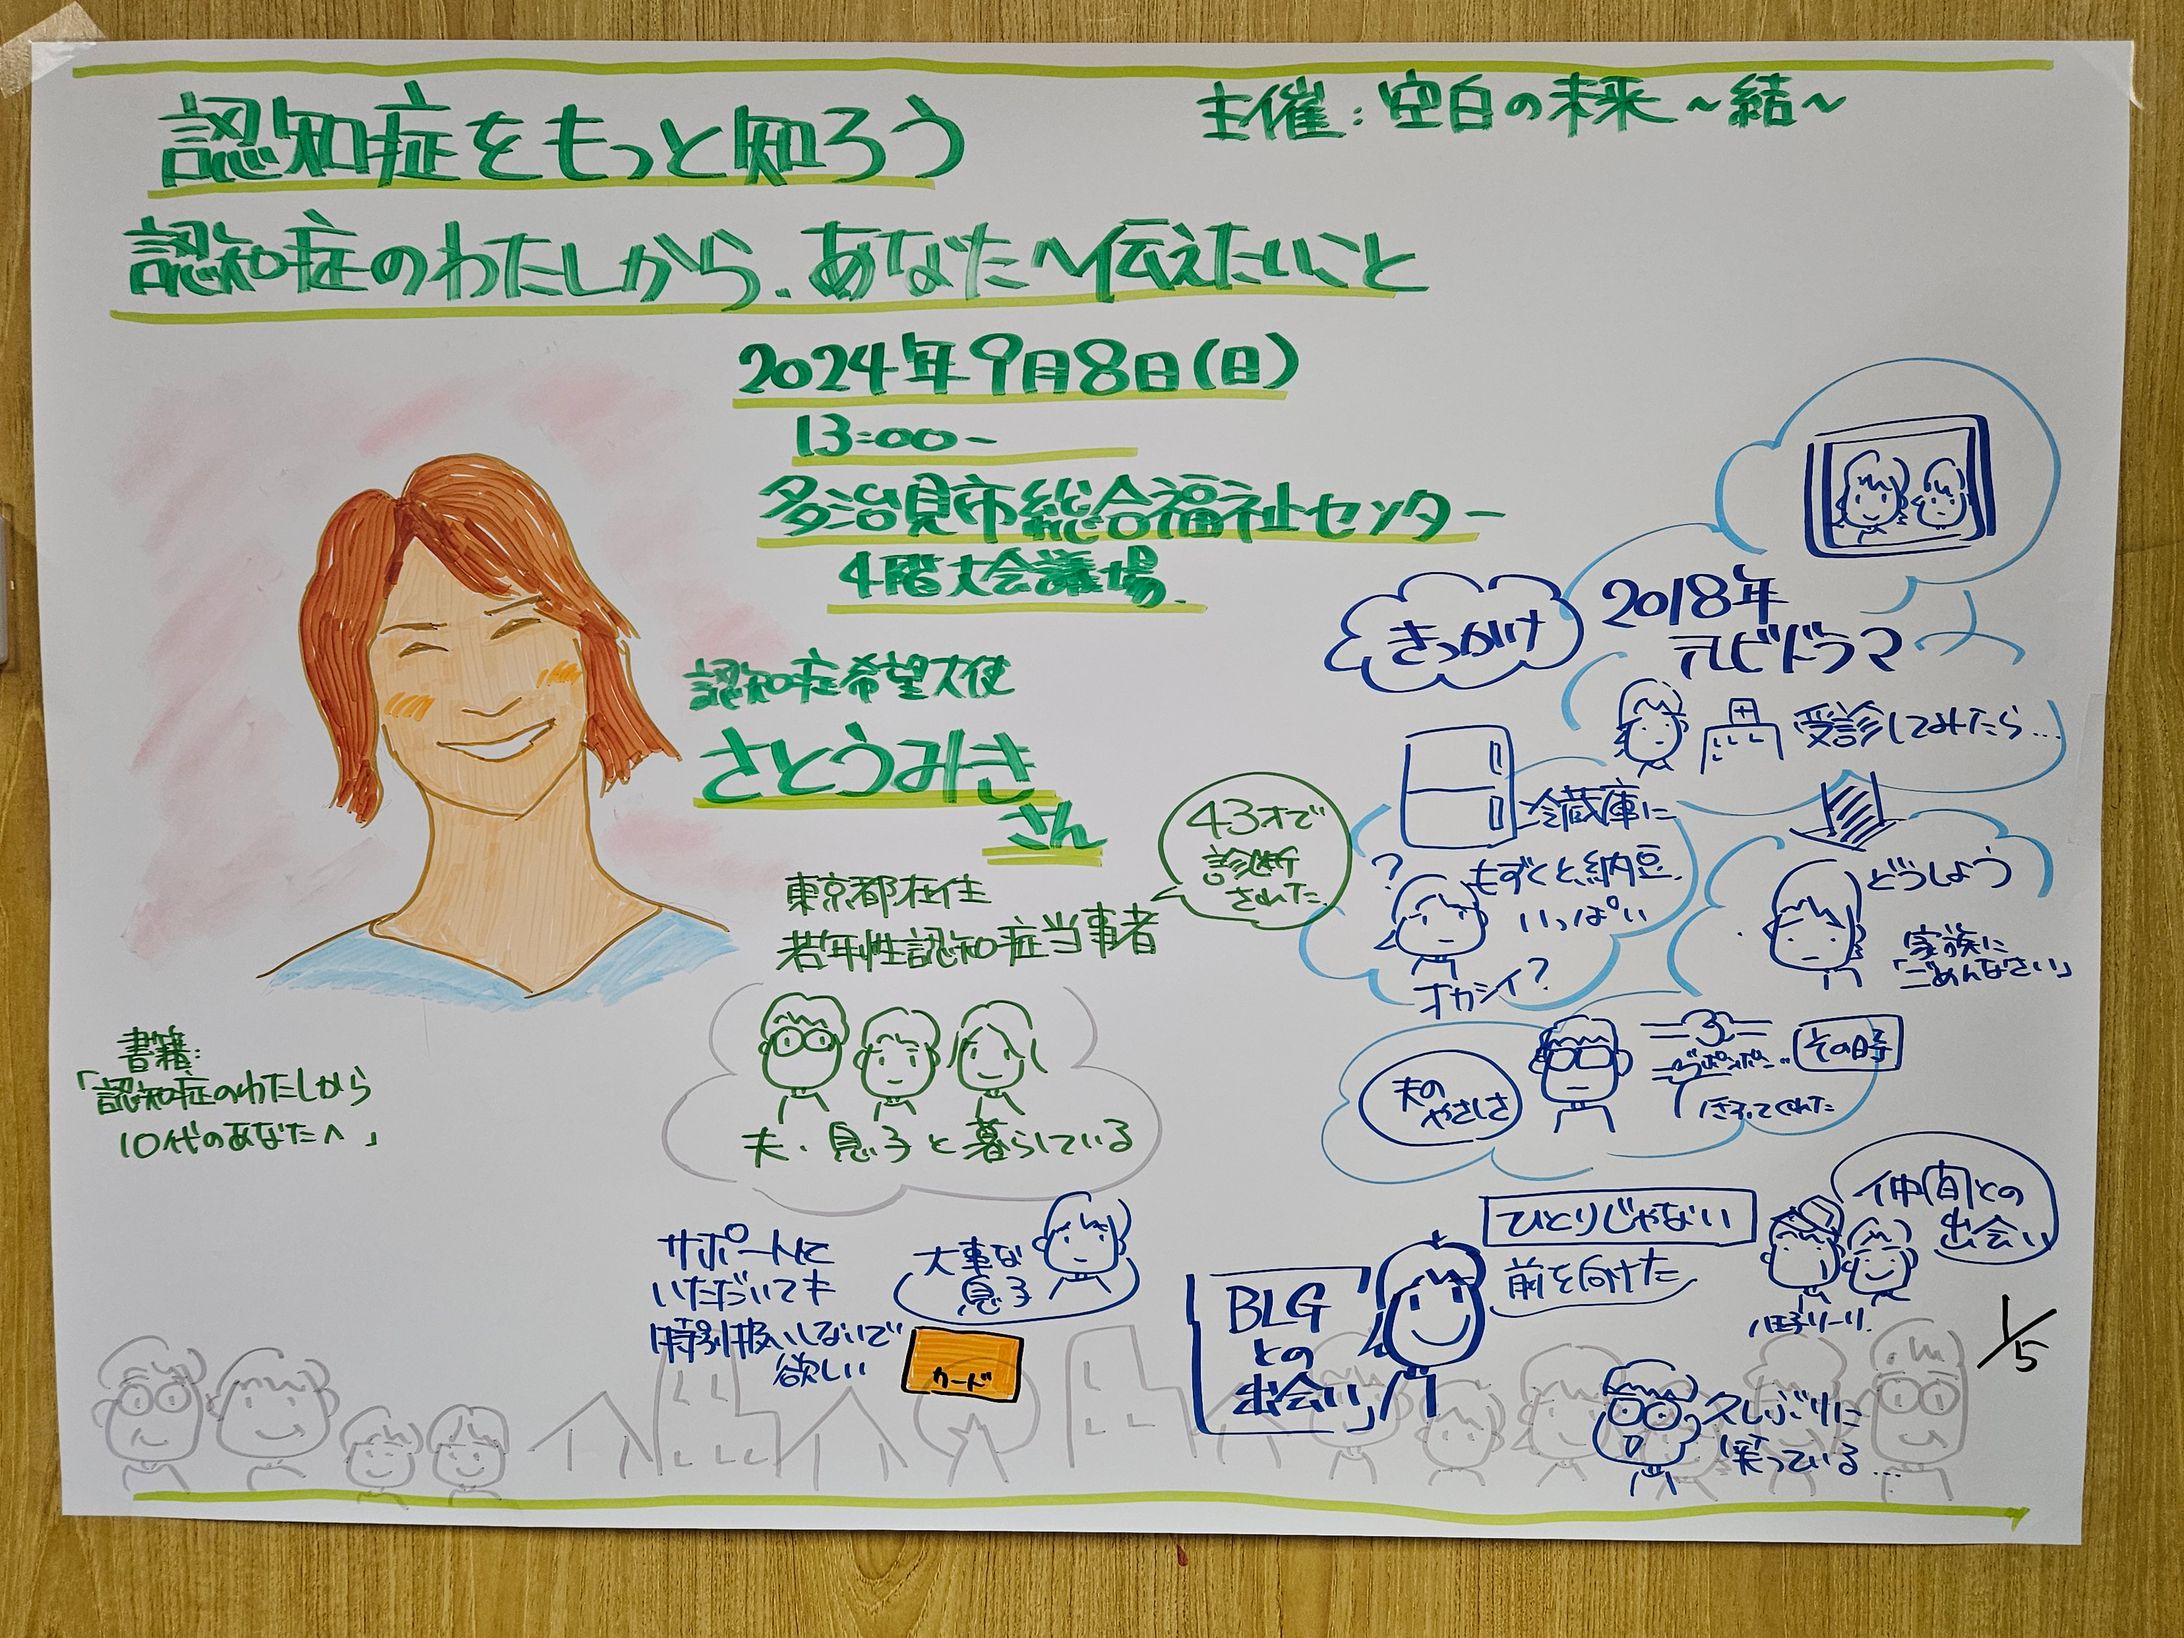 認知症をもっと知ろう
主催：空白の未来～結～
認知症のわたしから、あなたへ伝えたいこと
2024年9月8日(日)
13:00~
多治見市総合福祉センター
4階大会議場
認知症希望大使
さとうみき
さん
東京都在住
若年性認知症当事者
43才で
診断
された
夫・息子と暮らしている
書籍:
「認知症のわたしから
10代のあなたへ」
きっかけ
2018年
テレビドラマ
受診してみたら…
冷蔵庫に
もずくと納豆
いっぱい
?
オカシイ?
どうしよう
家族に
「ごめんなさい」
夫の
やさしさ
その時
サポートにて
いただいても
特別扱いしないで
欲しい
大事な
息子
カード
BLG
との
出会い
ひとりじゃない
前を向けた
仲間との
出会い
久しぶりに
笑っている…
1/5